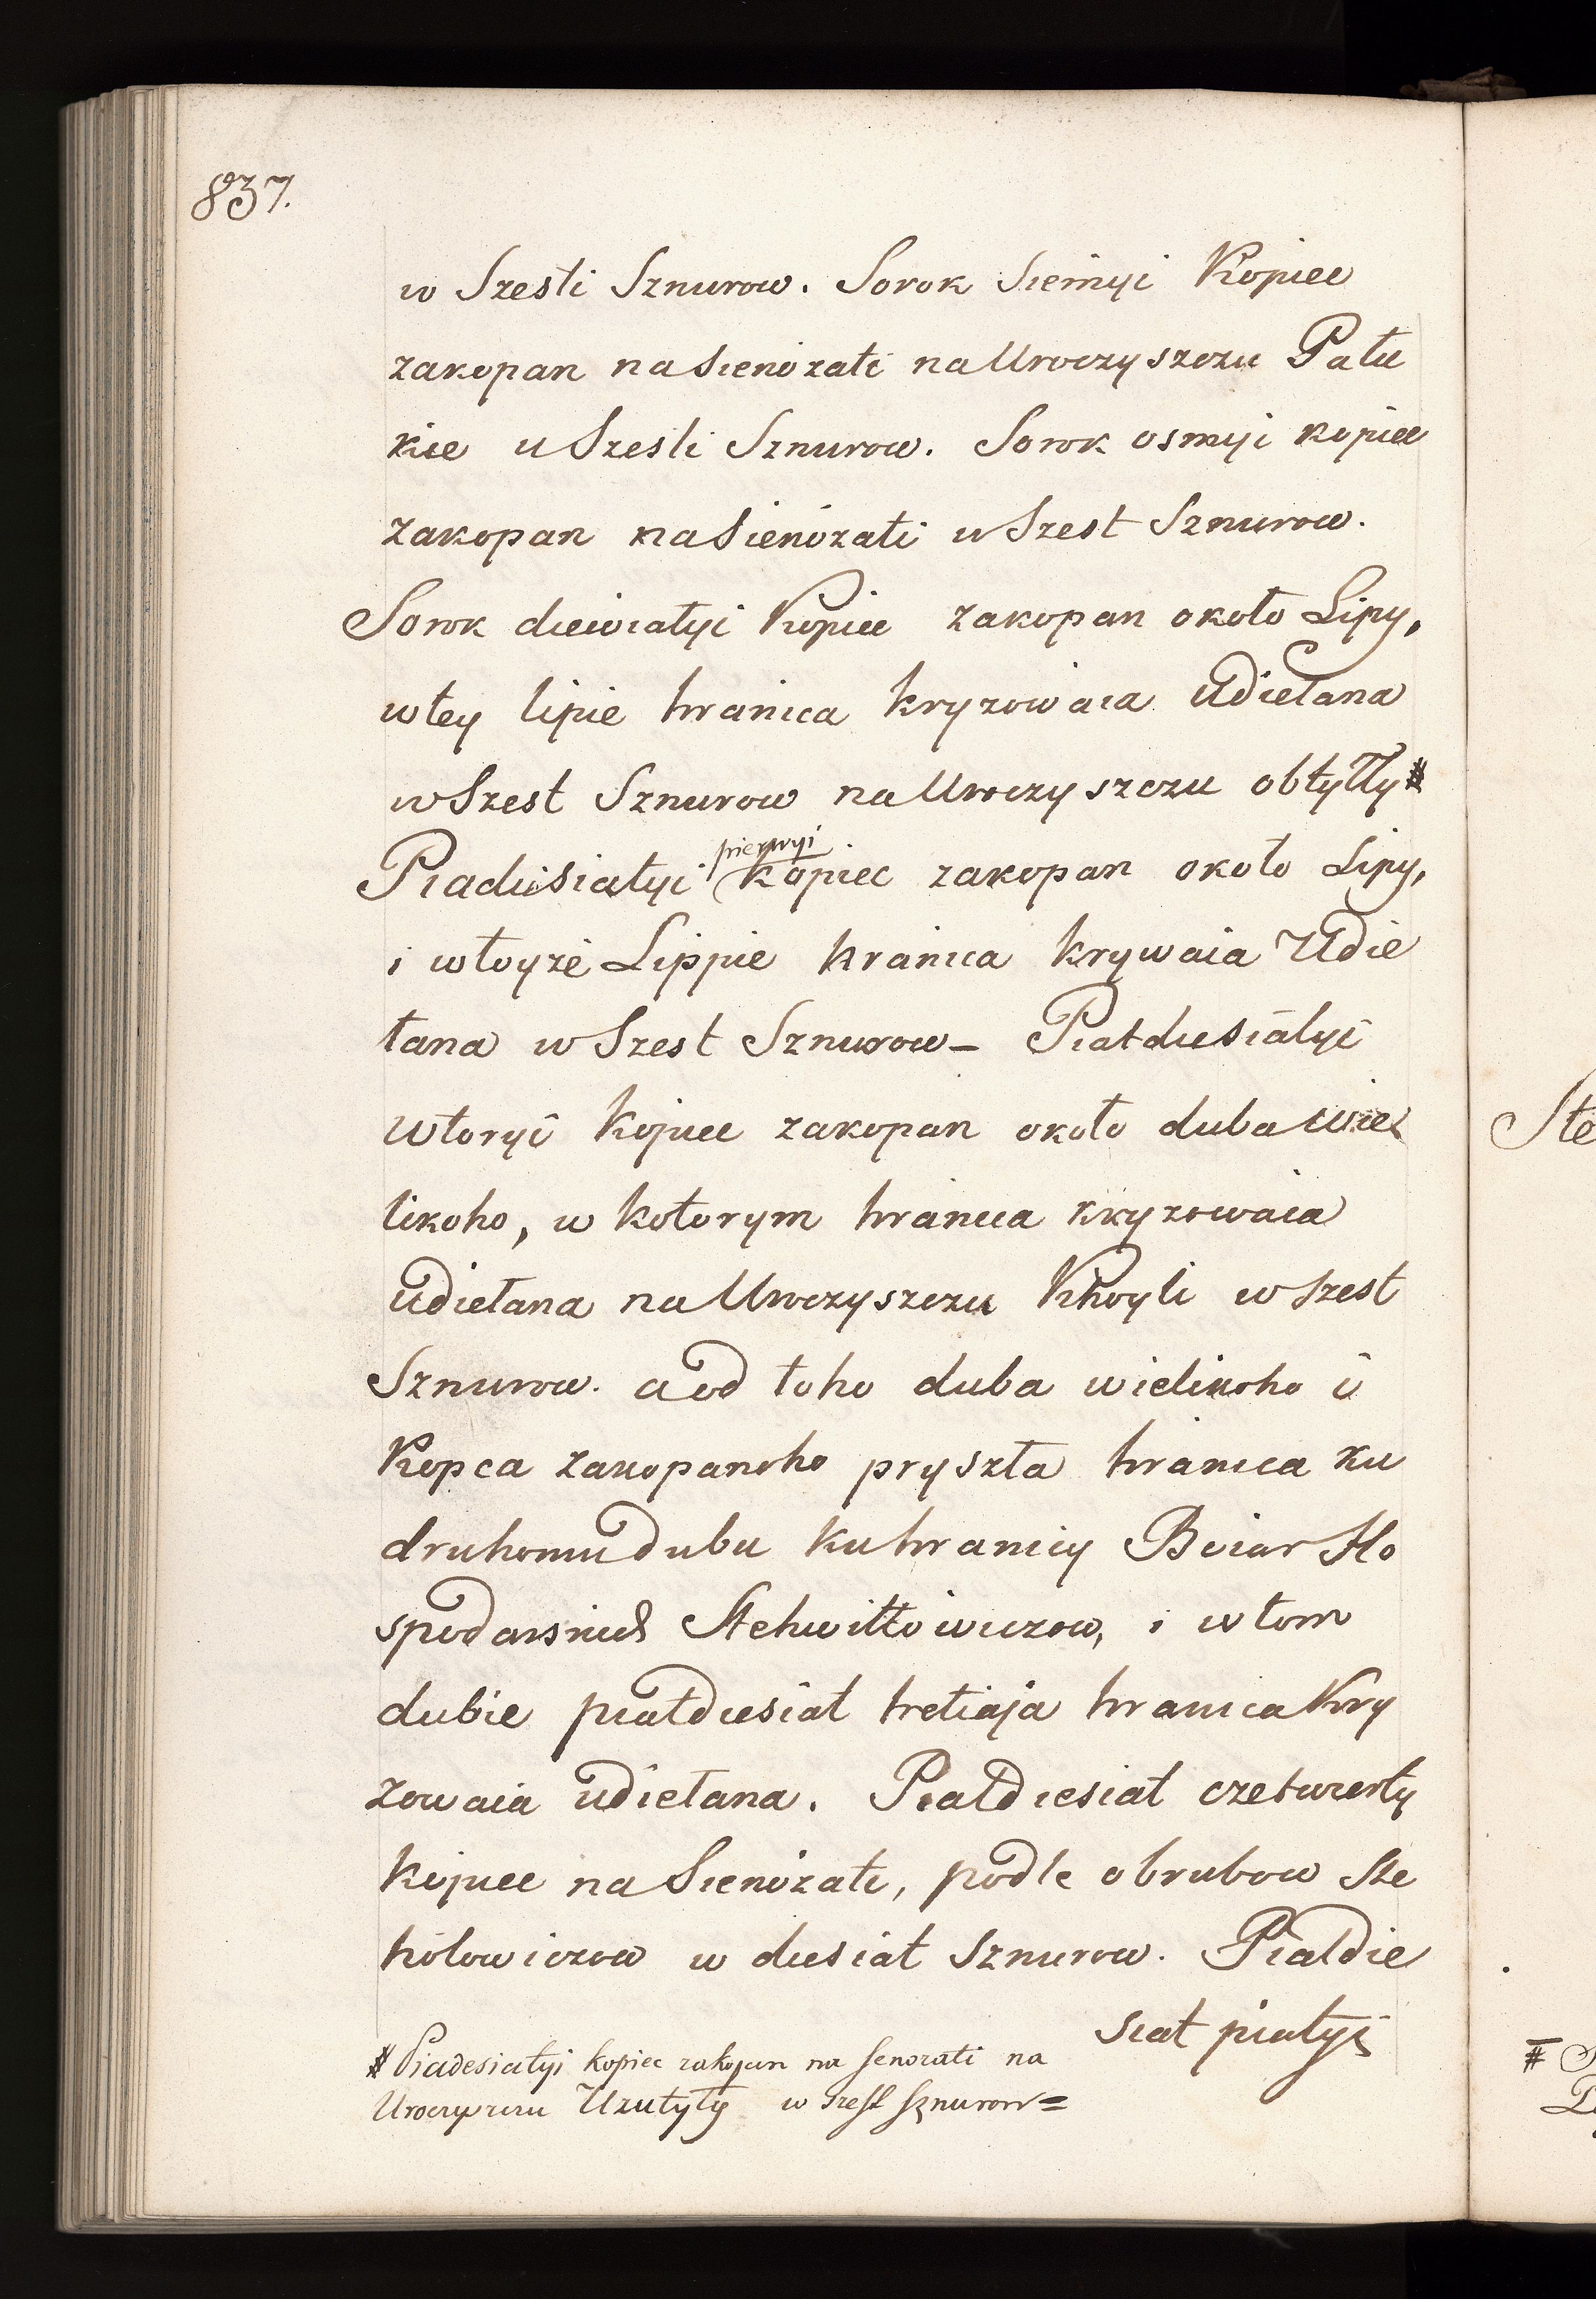 837.
w Szesti Sznurow. Sorok Siemyi Kopiec
zakopan na Sienożati na Uroczyszczu Pału
kie u Szesti Sznurow. Sorok osmyi kopiec
zakopan na Sienożati w Szest Sznurow.
Sorok dziewiatyi Kopiec zakopan około Lipy,
w tey lipie hranica kryzowaia Udiełana
w Szest Sznurow na Uroczyszczu obtyłły #
Piadiesiatyi pierwyi kopiec zakopan około Lipy,
i w toyże Lippie hranica krywaia Udie
łana w Szest Sznurow – Piatdiesiatyi
wtoryi kopiec zakopan około duba wie
likoho, w kotorym hranica kryzowaia
udiełana na Uroczyszczu Khoyli w Szest
Sznurow. a od toho duba wielikoho i
Kopca zakopanoho pryszła hranica ku
druhomu dubu ku hranicy Boiar Ho
spodarskich Stehwiłłowiczow, i w tom
dubie piatdiesiat tretiaja hranica Kry
zowaia udiełana. Piatdiesiat czetwerty
kopiec na Sienożati, podle obrubow Ste
holowiczow w diesiat Sznurow. Piatdie
siat piatyi
# Piadesiatyi kopiec zakopan na senozati na
Uroczyszczu Uzutyty w szest sznurow =